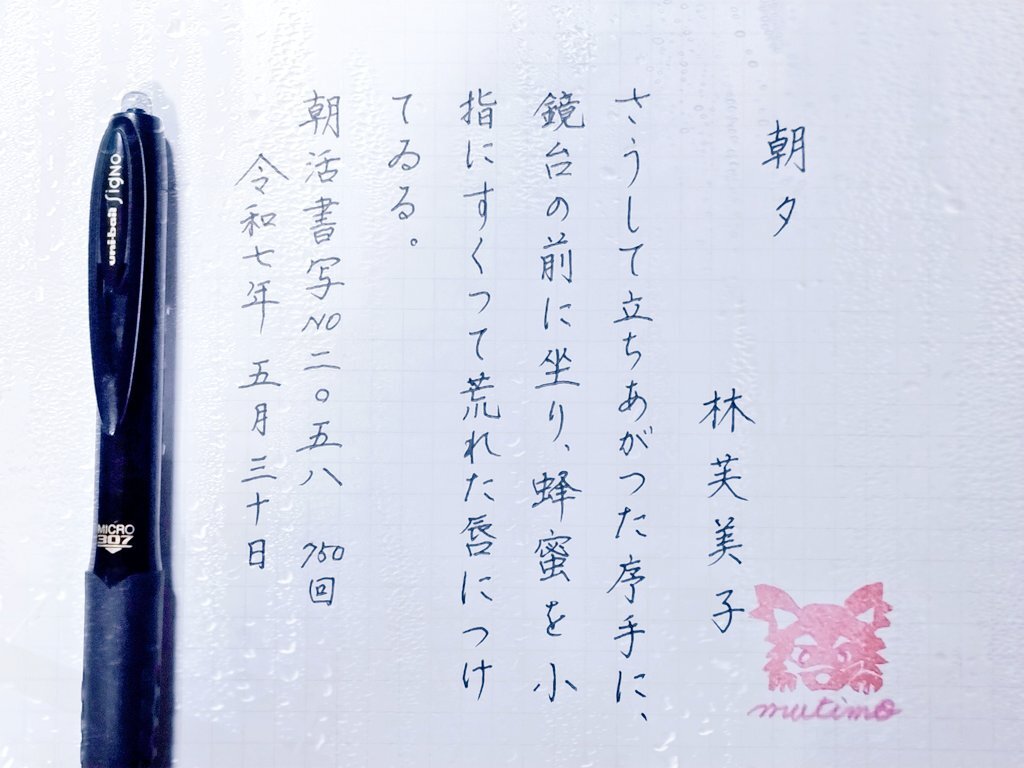 朝夕
林芙美子
さうして立ちあがつた序手に、
鏡台の前に坐り、蜂蜜を小
指にすくつて荒れた唇につけ
てゐる。
朝活書写NO二〇五八 750回
令和七年 五月三十日
mutimo
uni-ball SigNO
MICRO
307